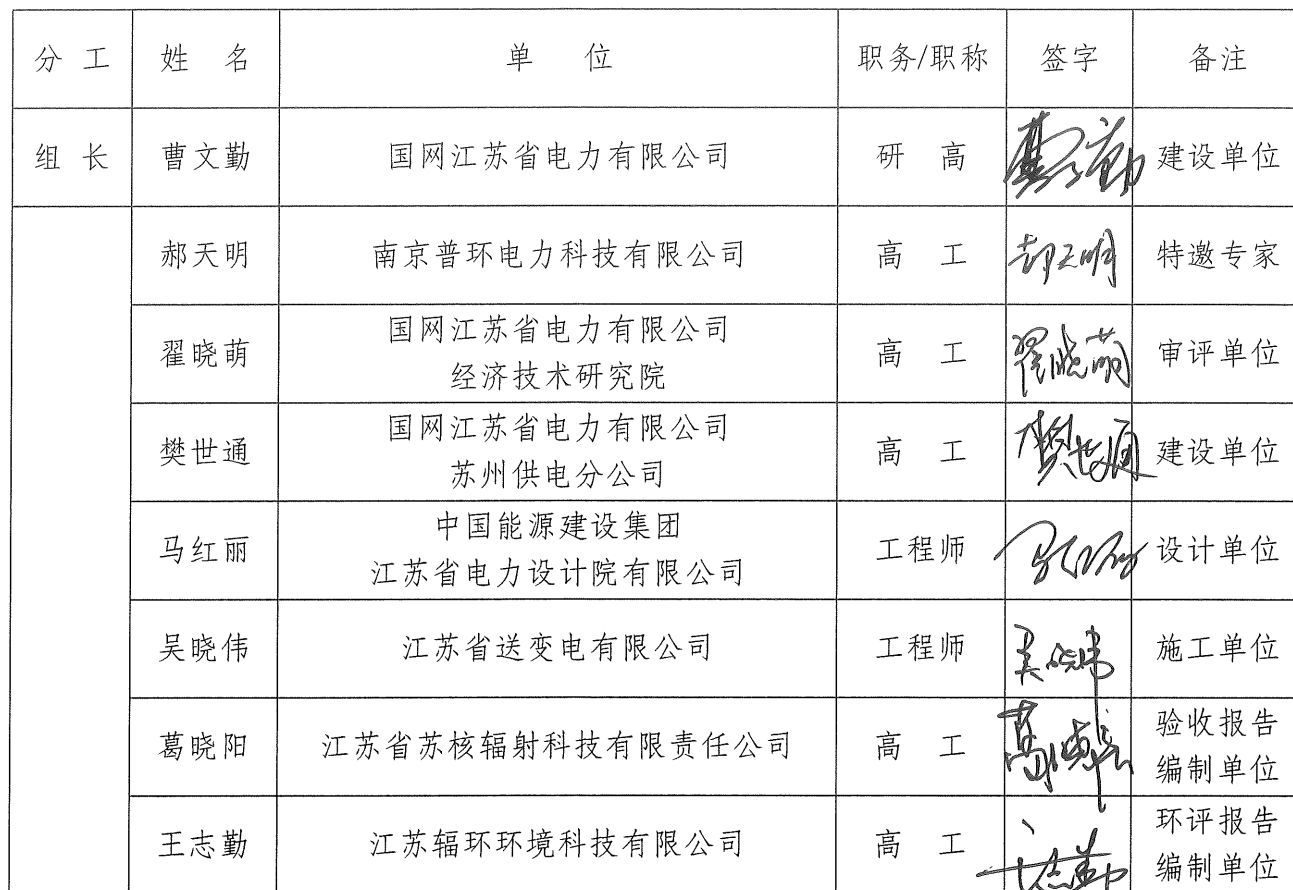 分工 姓名 单位 职务/职称 签字 备注
组长 曹文勤 国网江苏省电力有限公司 研高 曹文勤 建设单位
郝天明 南京普环电力科技有限公司 高工 郝天明 特邀专家
翟晓萌 国网江苏省电力有限公司
经济技术研究院 高工 翟晓萌 审评单位
樊世通 国网江苏省电力有限公司
苏州供电分公司 高工 樊世通 建设单位
马红丽 中国能源建设集团
江苏省电力设计院有限公司 工程师 马红丽 设计单位
吴晓伟 江苏省送变电有限公司 工程师 吴晓伟 施工单位
葛晓阳 江苏省苏核辐射科技有限责任公司 高工 验收报告
编制单位
王志勤 江苏辐环环境科技有限公司 高工 王志勤 环评报告
编制单位